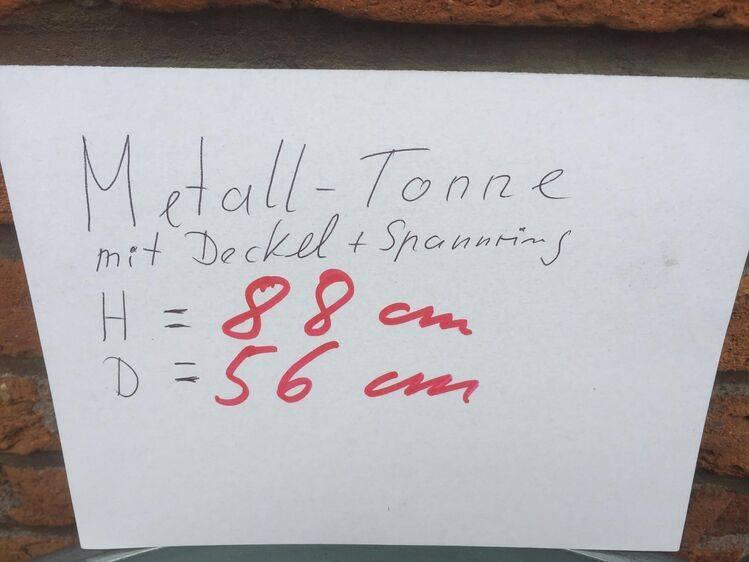 Metall-Tonne
mit Deckel + Spannring
H = 88 cm
D = 56 cm